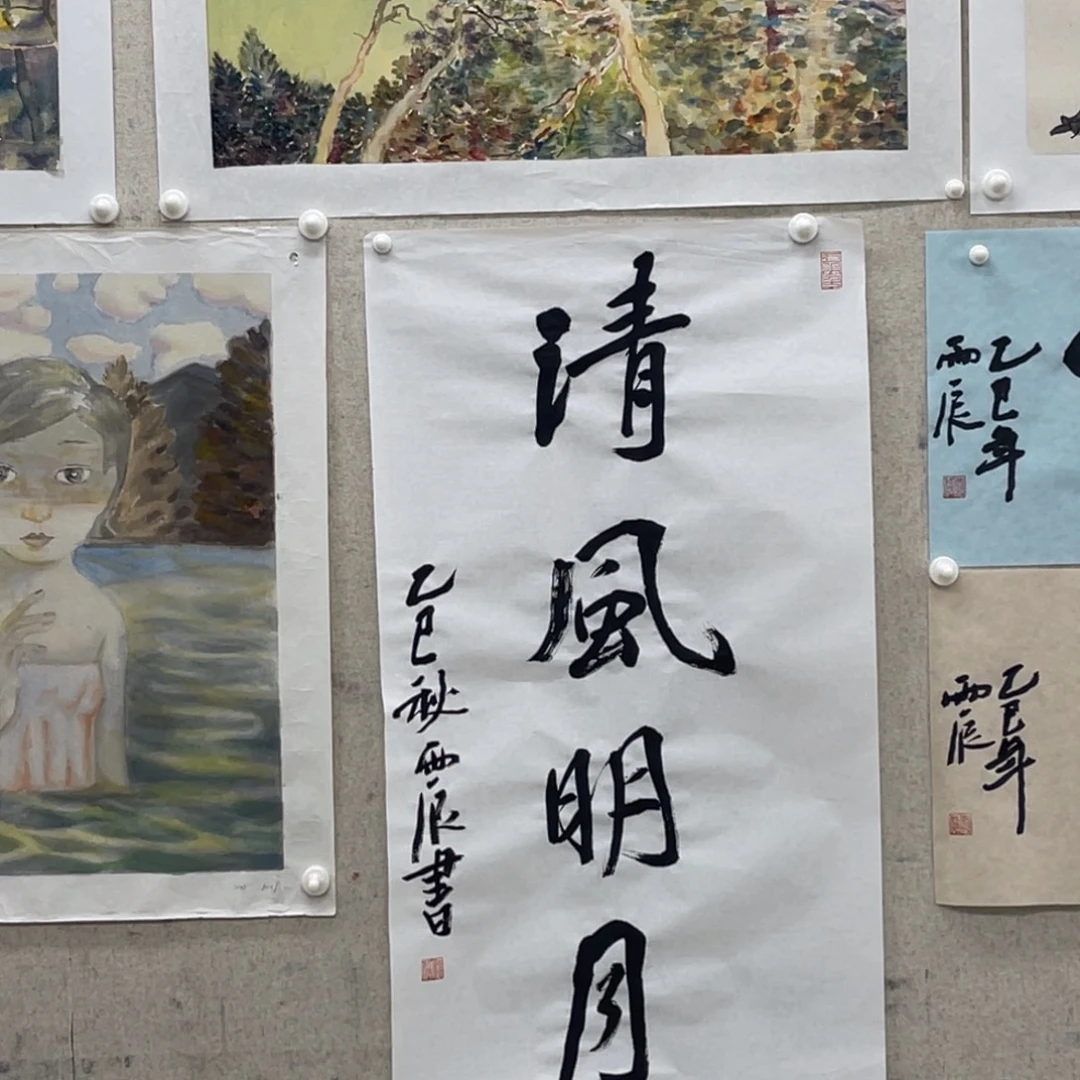 清風明月
乙巳秋雨辰書
乙巳年
雨辰
乙巳年
雨辰